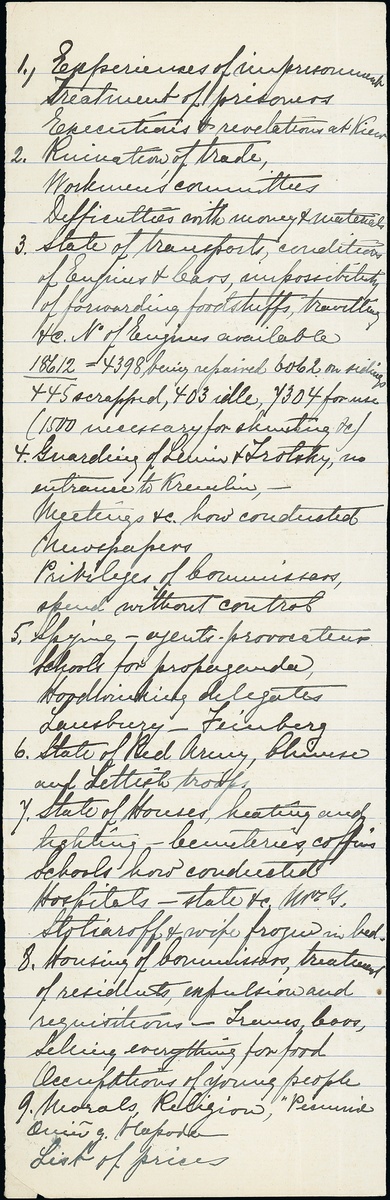 1., Experiences of imprisonment
Treatment of prisoners
Executions & revelations at Kiew
2. Ruination of trade,
Workmens committees
Difficulties with money & materials
3. State of transports, conditions
of Engines & cars, impossibility
of forwarding foodstuffs, travelling
&c. No of Engines available
18612 = 4398, being repaired 6062, on sidings
445 scrapped, 403 idle, 7304 for use
(1500 necessary for shunting &c)
4. Guarding of Lenin & Trotsky, no
entrance to Kremlin, —
Meetings &c. how conducted
Newspapers
Privileges of Commissars,
spend without control
5. Spying — agents-provocateurs
Schools for propaganda,
Hoodwinking delegates
Lansbury — Feinberg
6. State of Red Army, Chinese
and Lettish troops,
7. State of Houses, heating and
lighting — Cemeteries, coffins
Schools how conducted
Hospitals — state &c,
& wife frozen in bed.
8. Housing of Commissars, treatment
of residents, expulsion and
requisitions — Trams, cars,
Selling everything for food
Occupations of young people
9. Morals, Religion,
List of prices